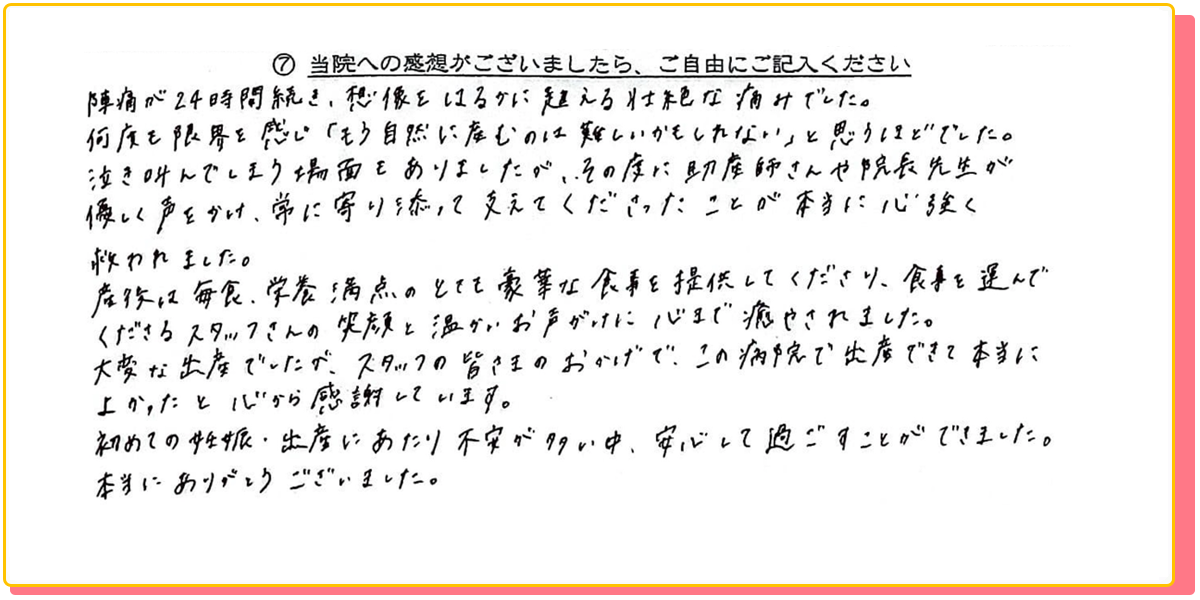 ⑦ 当院への感想がございましたら、ご自由にご記入ください
陣痛が24時間続き、想像をはるかに超える壮絶な痛みでした。
何度も限界を感じ「もう自然に産むのは難しいかもしれない」と思うほどでした。
泣き叫んでしまう場面もありましたが、その度に助産師さんや院長先生が
優しく声をかけ、常に寄り添って支えてくださったことが本当に心強く
救われました。
産後は毎食、栄養満点のとても豪華な食事を提供してくださり、食事を運んで
くださるスタッフさんの笑顔と温かいお声がけに心まで癒やされました。
大変な出産でしたが、スタッフの皆さまのおかげで、この病院で出産できて本当に
よかったと心から感謝しています。
初めての妊娠・出産にあたり不安が多い中、安心して過ごすことができました。
本当にありがとうございました。